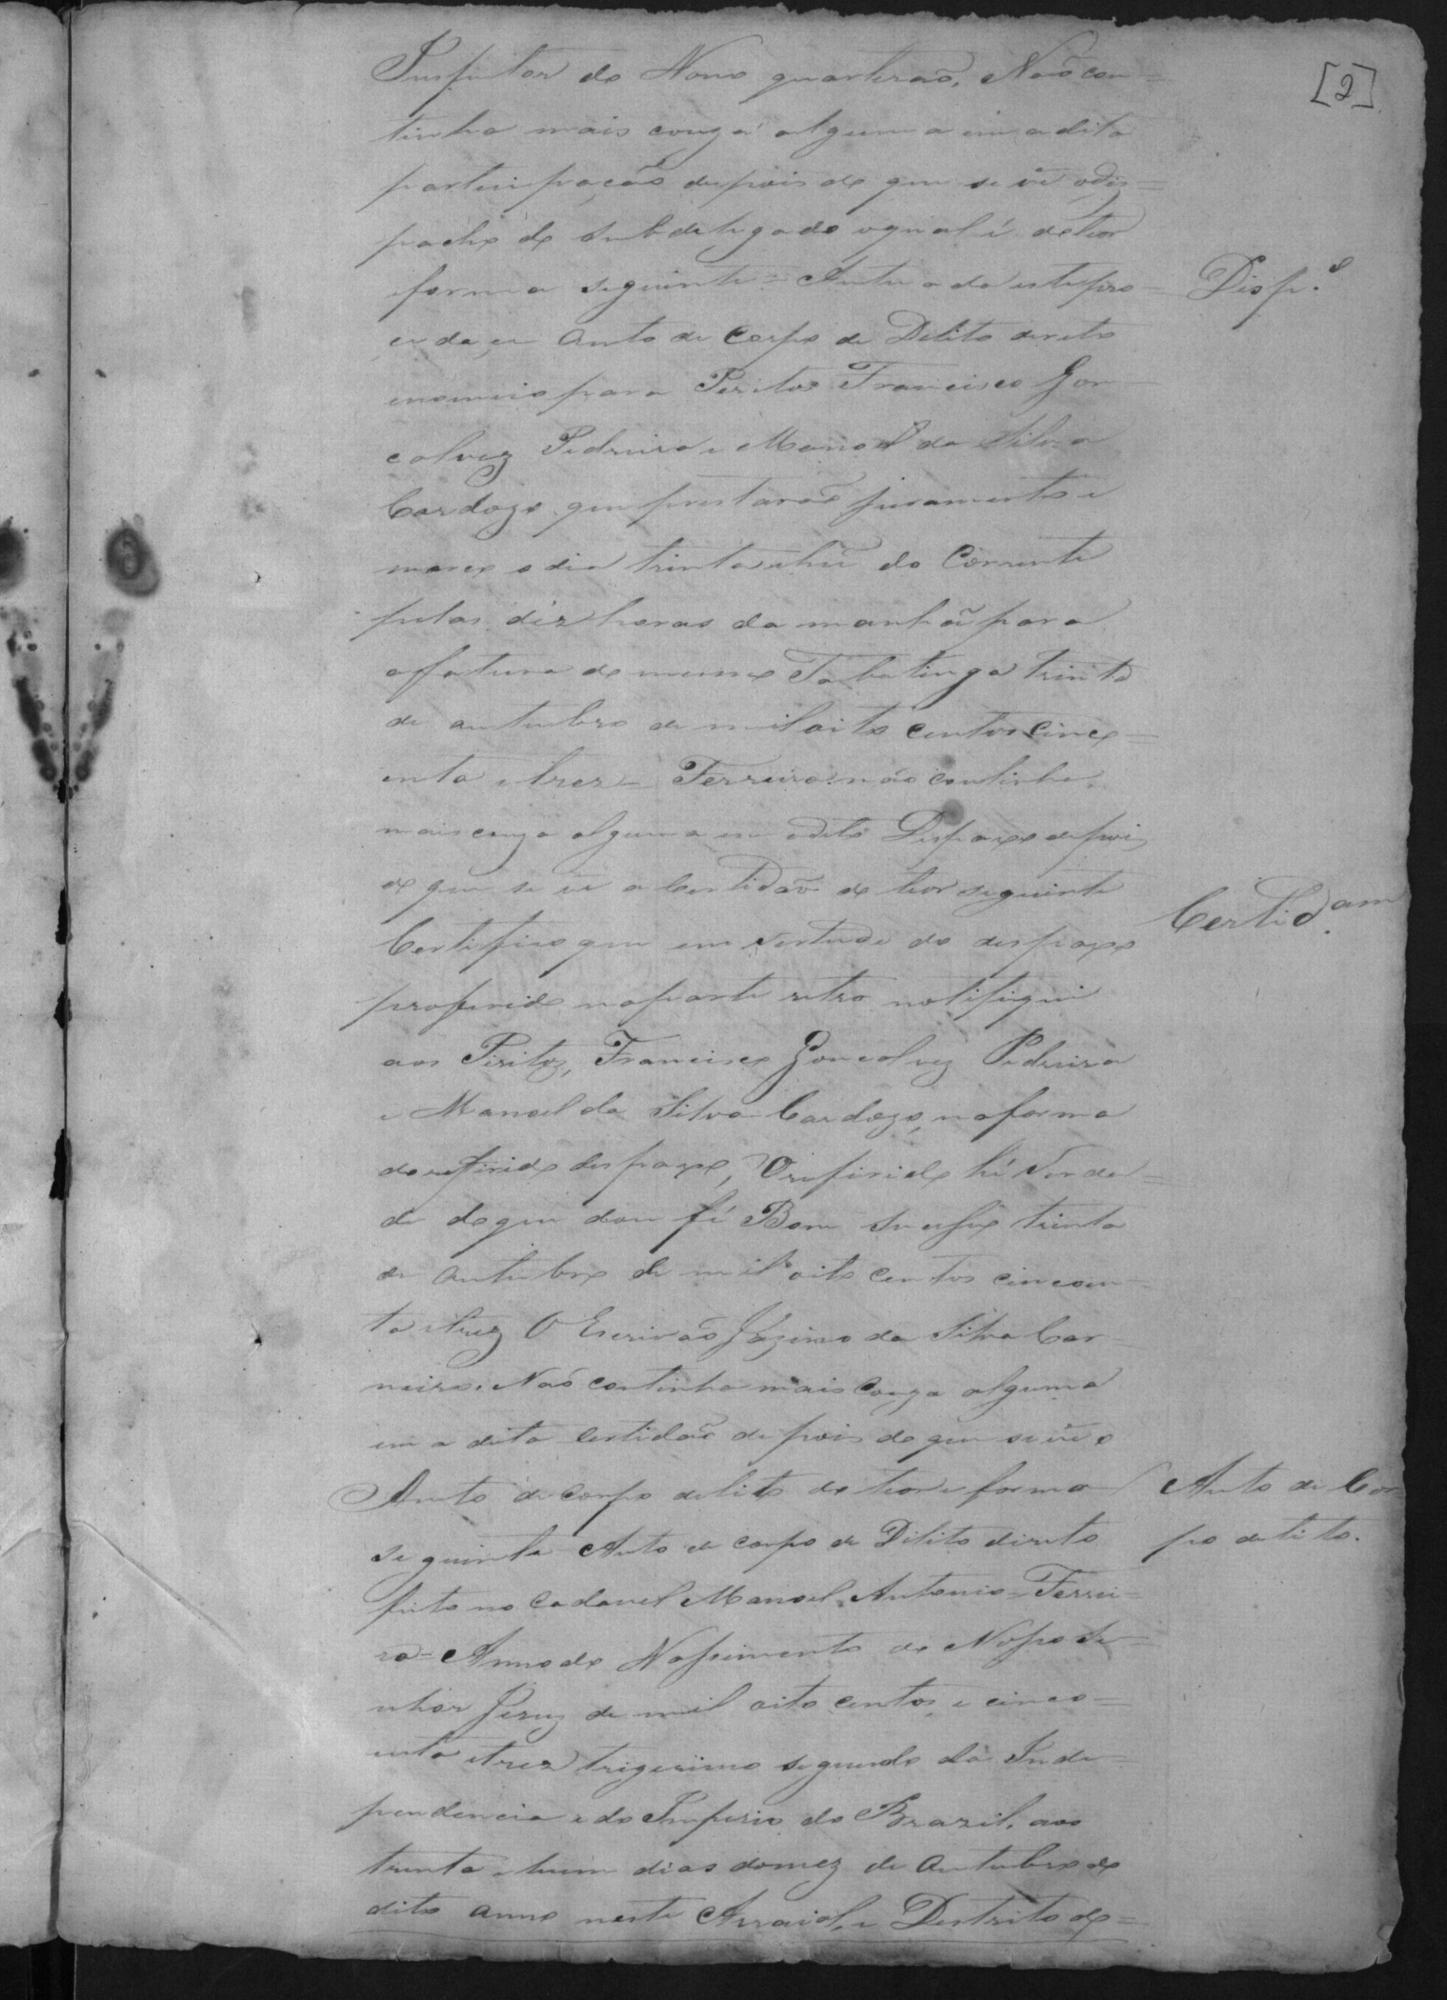 [2]
Inspetor do Nono quarteraõ, Naõ con=
tinha mais couza alguma em a dita
participaçaõ depois de que se vê o dis=
pacho do Subdelegado o qual é do teor
forma seguinte = Autuada esta pro
Disp.º
ceda se auto de Corpo de Delito direto
enomeio para Peritos Francisco Gon
calvez Pedreira e Manoel da Silva
Cardozo que prestaraõ juramento e
marco o dia trinta e hũ do Corrente
pelas déz horas da manhã para
a fatura do mesmo Tabatinga trinta
de outubro de mil oito centos cinco=
enta e trez = Ferreira. não continha
mais couza alguma em o dito Despaxo depois
de que se vê a Certidaõ do teor seguinte
Certid.am
Certifico que em vertude do despaxo
proferido na parte retro notifiquei
aos Peritoz, Francisco Goncalvez Pedreira
e Manoel da Silva Cardozo, na forma
do referido despaxo, O referido hé Verda=
de do que dou fé Bom Sucesso trinta
de outubro de mil oito centos cincoen
ta e trez O Escrivaõ da Silva Car
neiro. Naõ continha mais Couza alguma
em a dita Certidaõ depois do que se vê o
Auto de Corpo delito do teor e forma
Auto de Cor
po delito.
seguinte Auto de Corpo de Dilito direto
feito no Cadavel Manoel Antonio Ferrei=
ra = Anno do Nascimento de Nosso Se=
nhor Jezuz de mil oito centos e cinco=
enta e trez trigesimo segundo da Inde=
pendencia e do Imperio do Brazil, aos
trinta e hum dias do mez de outubro do
dito anno neste Arraial e Destrito do=